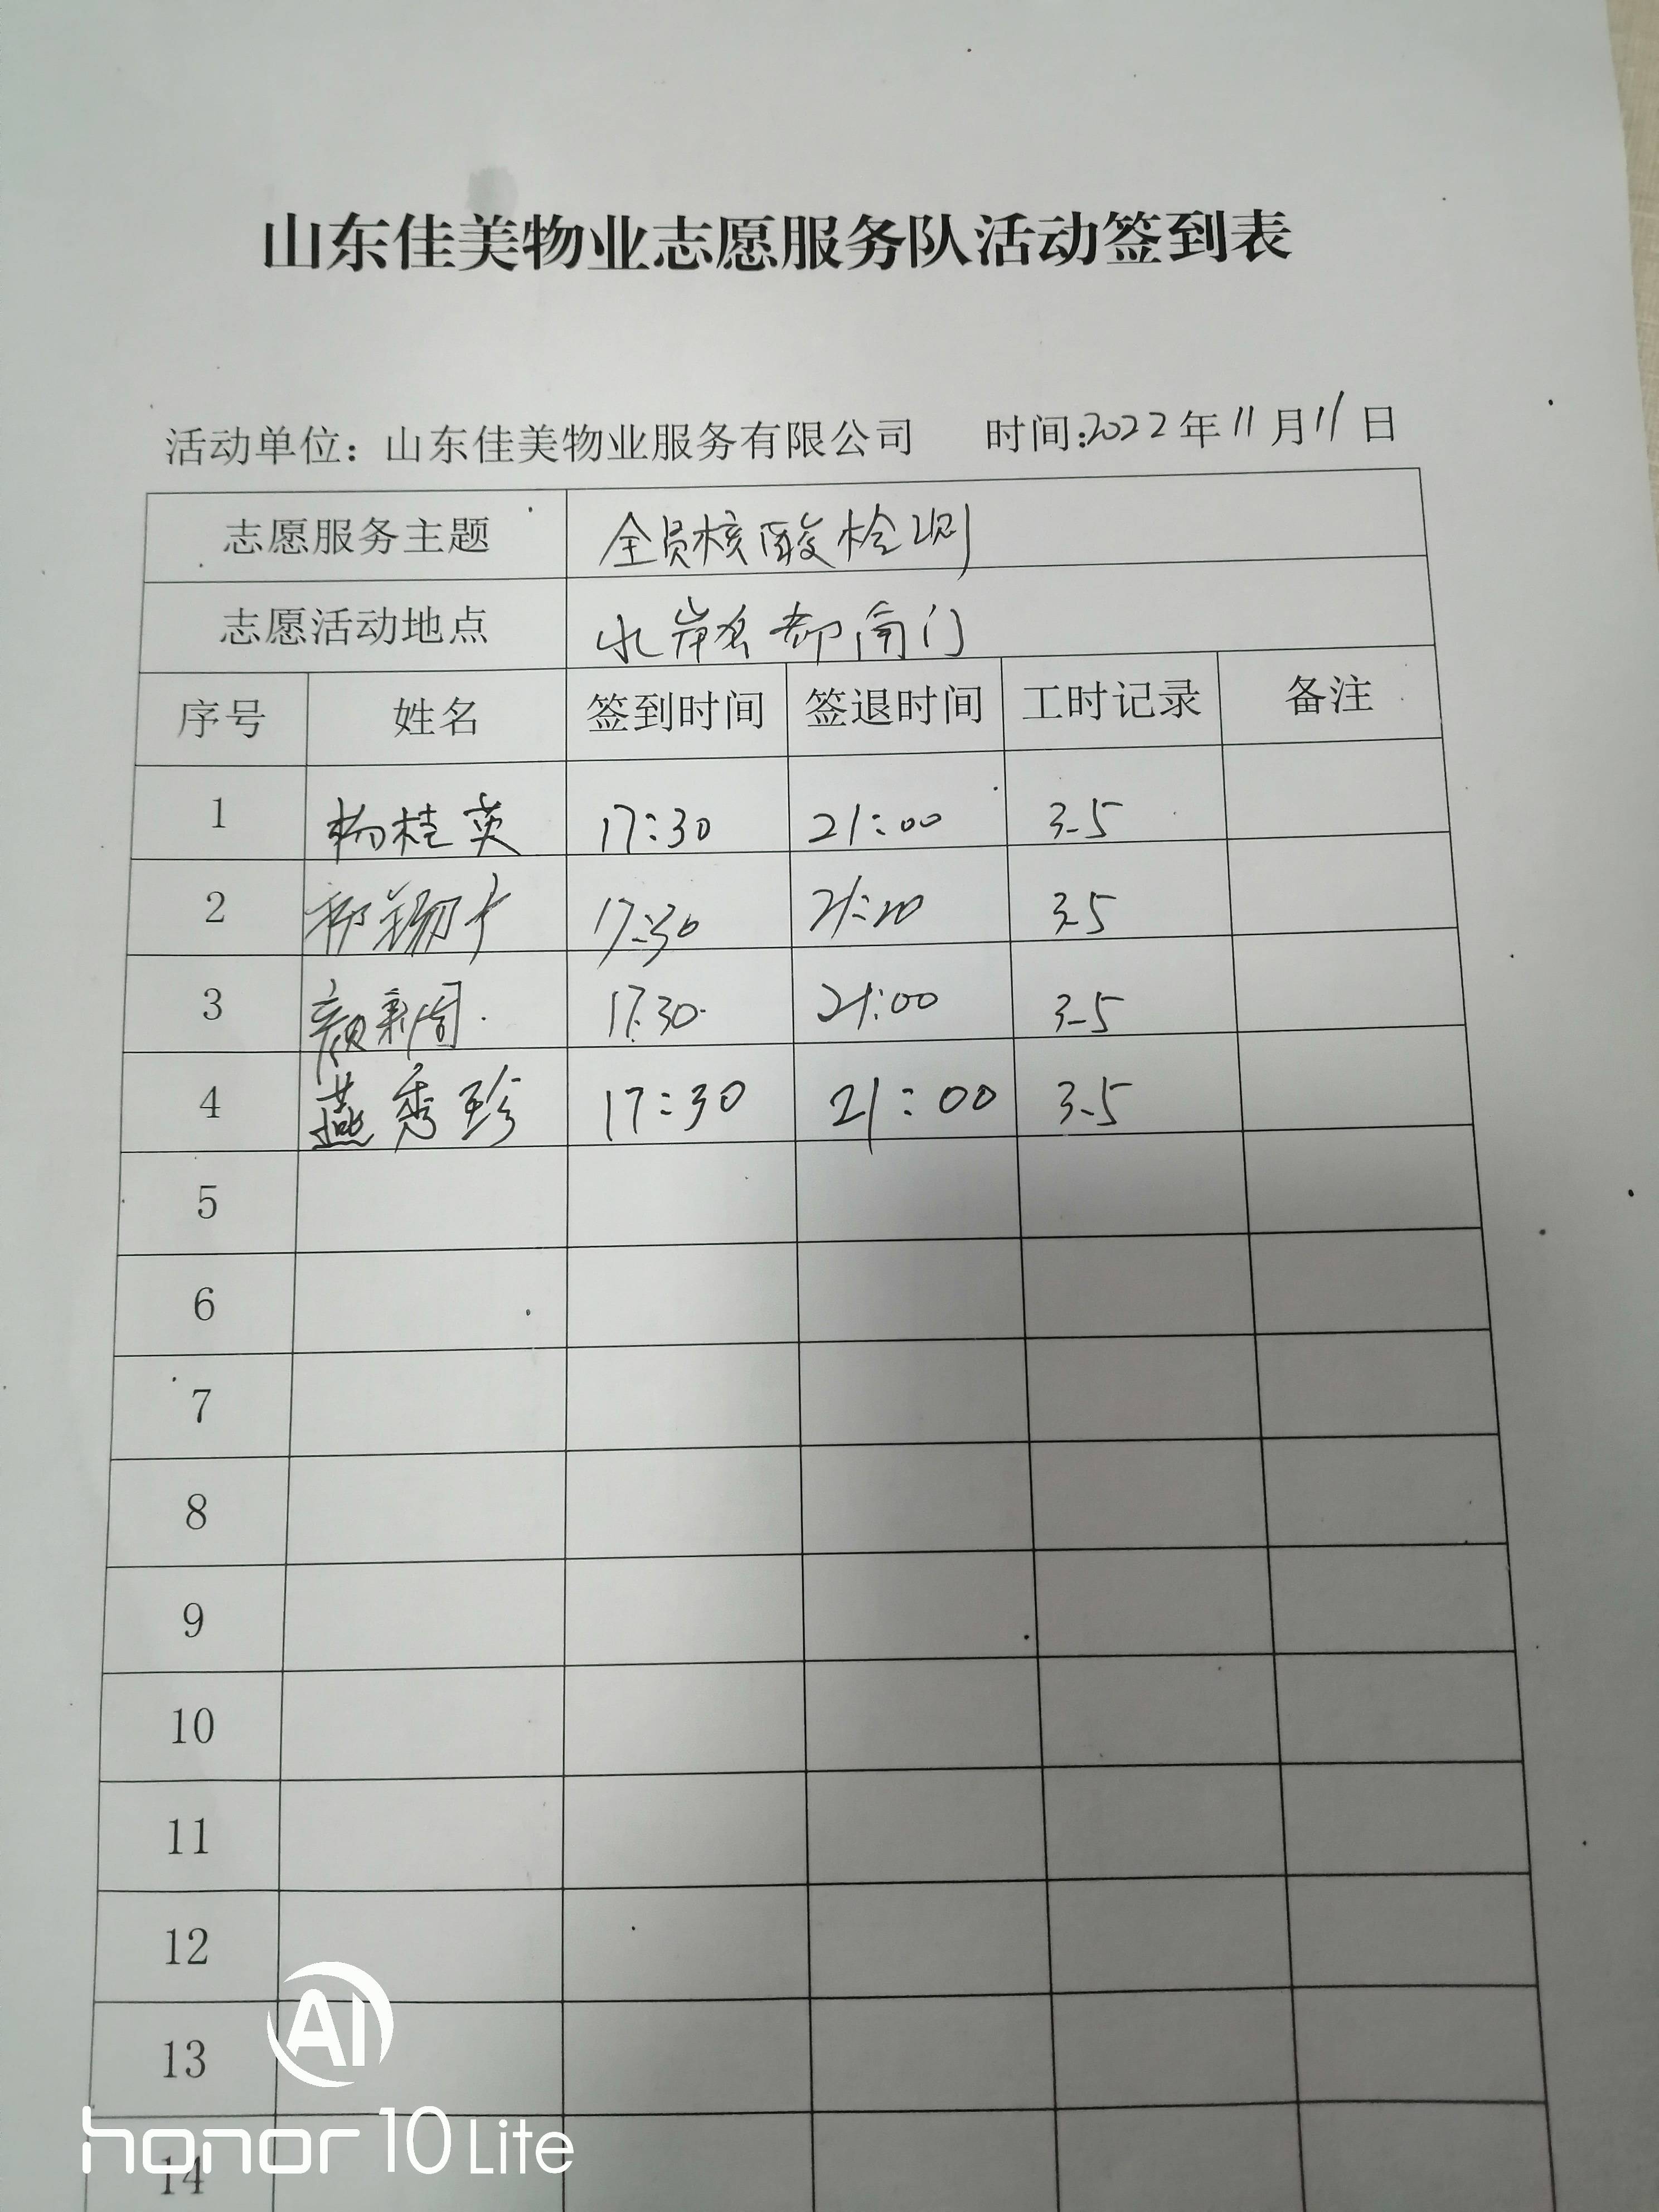 山东佳美物业志愿服务队活动签到表
活动单位：山东佳美物业服务有限公司 时间:2022年11月11日
志愿服务主题 全员核酸检测
志愿活动地点 水岸名都南门
序号 姓名 签到时间 签退时间 工时记录 备注
1 杨桂英 17:30 21:00 3.5
2 17:30 21:00 3.5
3 颜 17:30 21:00 3.5
4 燕秀珍 17:30 21:00 3.5
5
6
7
8
9
10
11
12
13
14
AI
honor 10 Lite